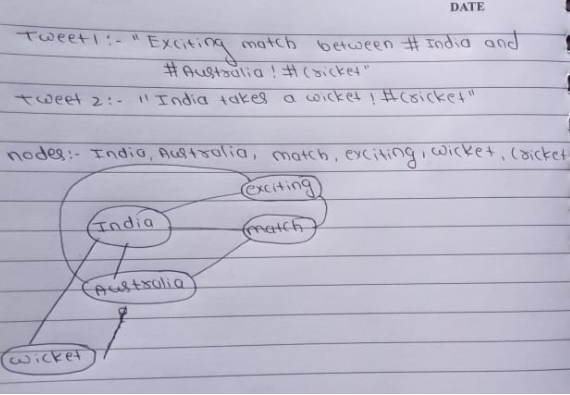 DATE
Tweet1:- "Exciting match between # India and
#Australia! #Cricket"
Tweet 2:- "India takes a wicket! #Cricket"
nodes:- India, Australia, match, exciting, wicket, Cricket
exciting
India
match
Australia
wicket